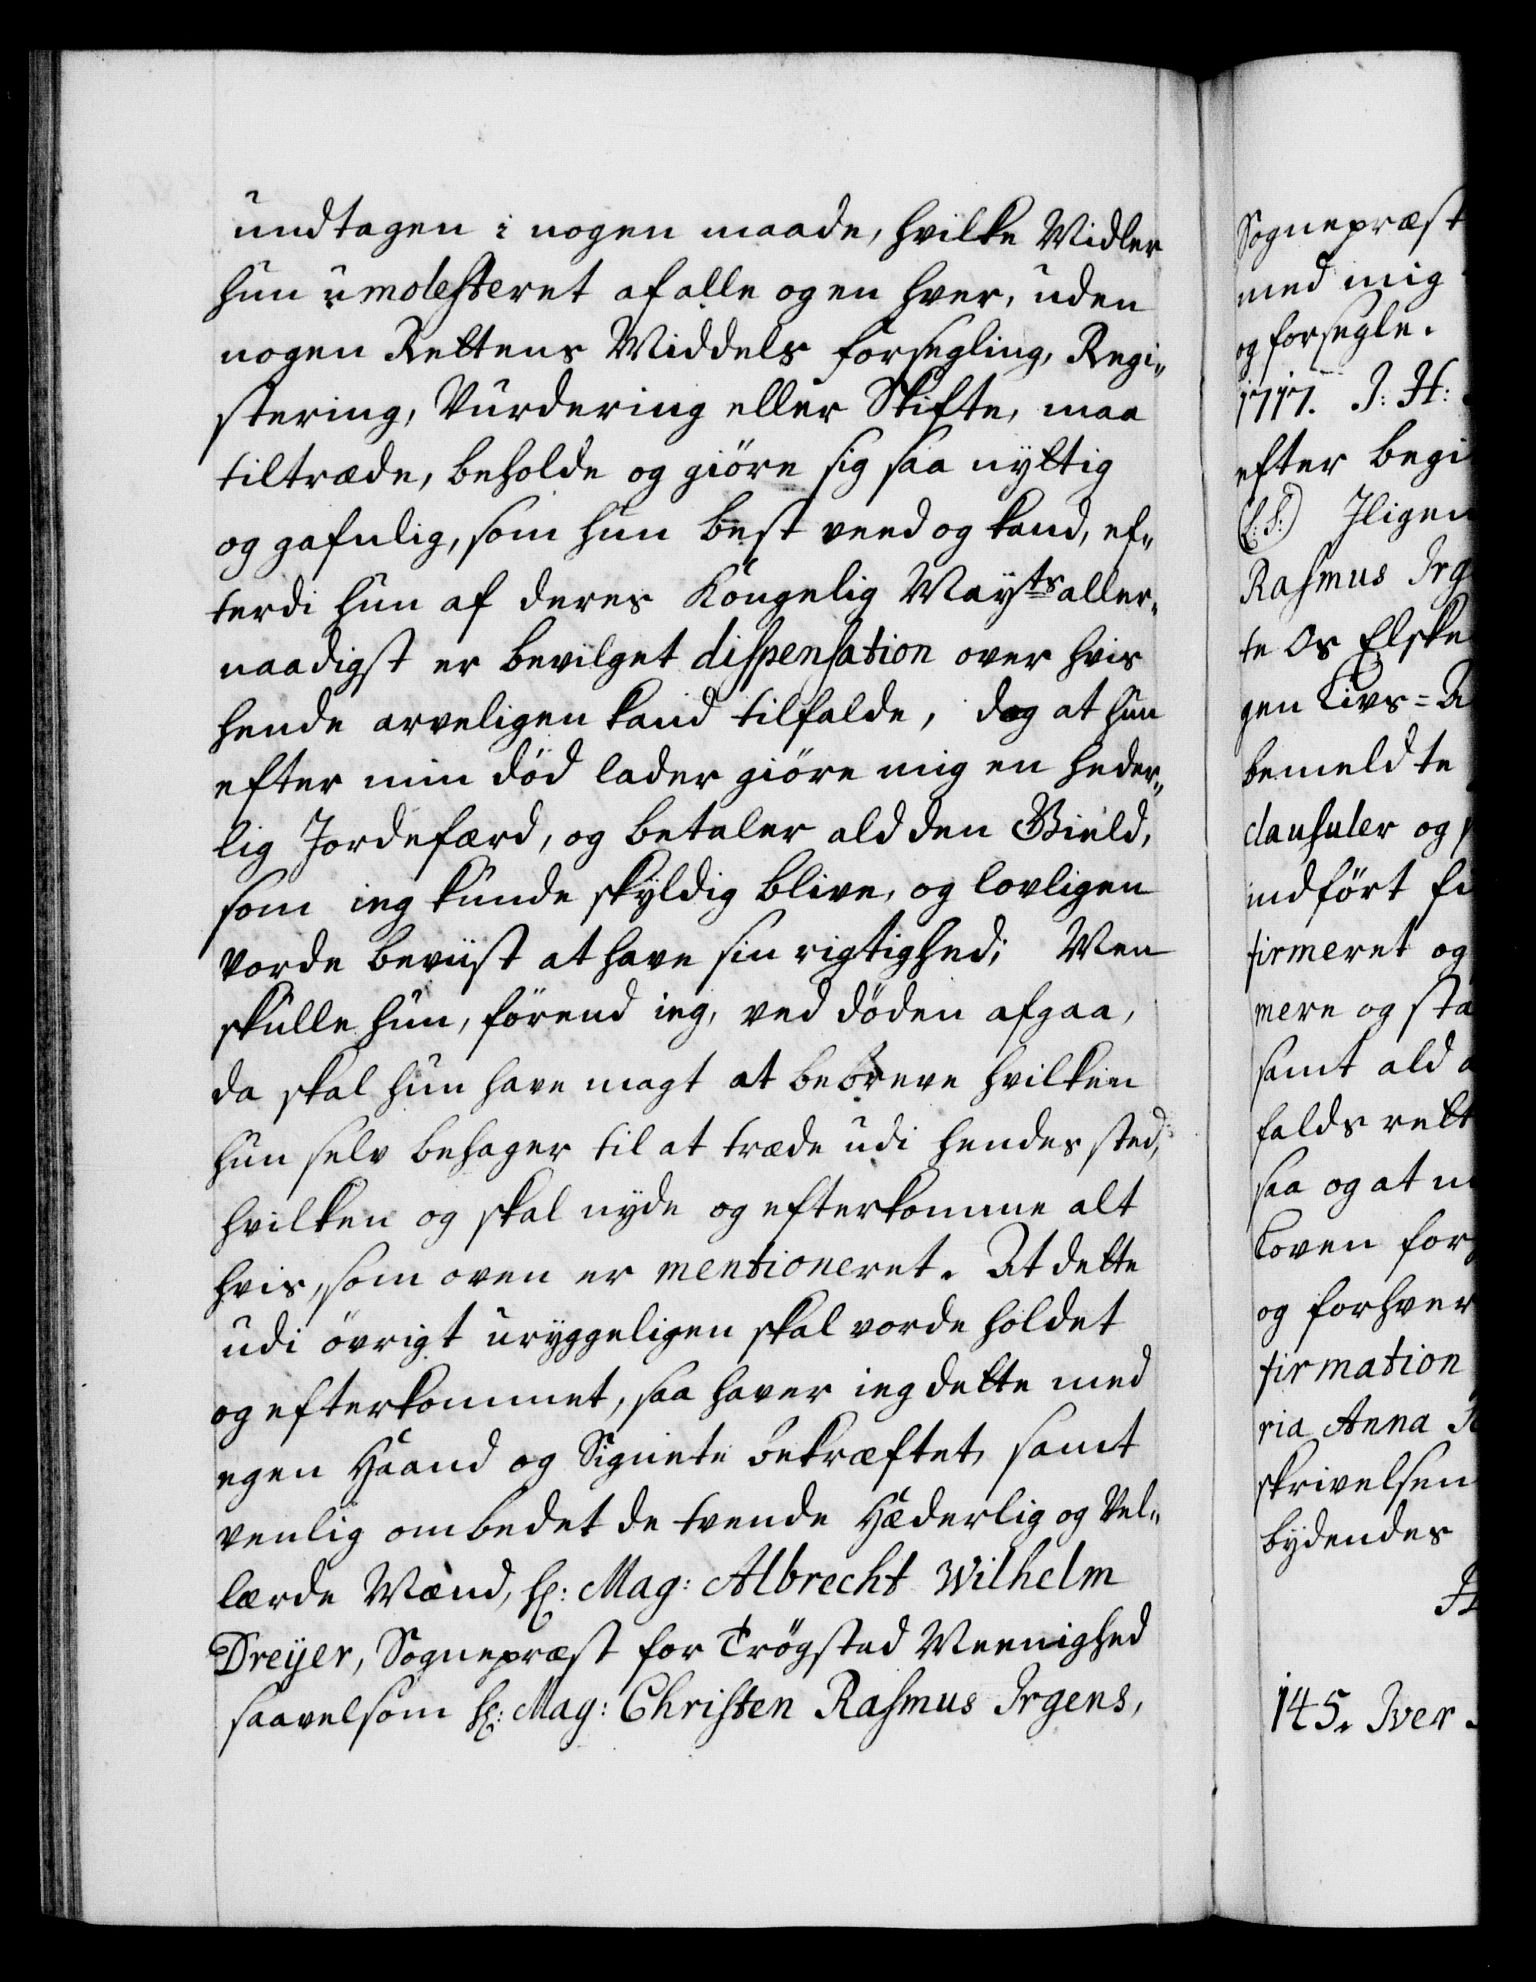 undtagen i nogen maade, hvilke Midler
hun umolesteret af alle og en hver, uden
nogen Rettens Middels forsegling, Regi„
stering, Vurdering eller Skifte, maa
tiltræde, beholde og giöre sig saa nyttig
og gafnlig, som hun best veed og kand, ef„
terdi hun af deres Kongelig Mayts aller„
naadigst er bevilget dispensation over hvis
hende arveligen kand tilfalde, dog at hun
efter min död lader giöre mig en heder„
lig Jordefærd, og betaler ald den Gield,
som ieg kunde skyldig blive, og lovligen
vorde beviist at have sin rigtighed; Men
skulle hun, förend ieg, ved döden afgaa,
da skal hun have magt at bebreve hvilken
hun selv behager til at træde udi hendes sted,
hvilken og skal nyde og efterkomme alt
hvis, som oven er mentioneret. At dette
udi övrigt uryggeligen skal vorde holdet
og efterkommet, saa haver ieg dette med
egen Haand og Signete bekræftet, samt
venlig ombedet de tvende Hæderlig og Vel„
lærde Mænd, Hr: Mag: Albrecht Wilhelm
Dreyer, Sognepræst for Trögstad Meenighed
saavelsom Hr: Mag: Christen Rasmus Irgens,
Sognepræst
med mig
og forsegle.
1717. J: H:
efter begi
(L: S:) Iligen
Rasmus Irg
te Os Elske
gen Livs=A
bemeldte
clausuler og
indfört fi
firmeret og
mere og sta
samt ald
falds rett
saa og at
Loven for
og forhver
firmation
ria Anna
skrivelsen
bydendes
145. Iver